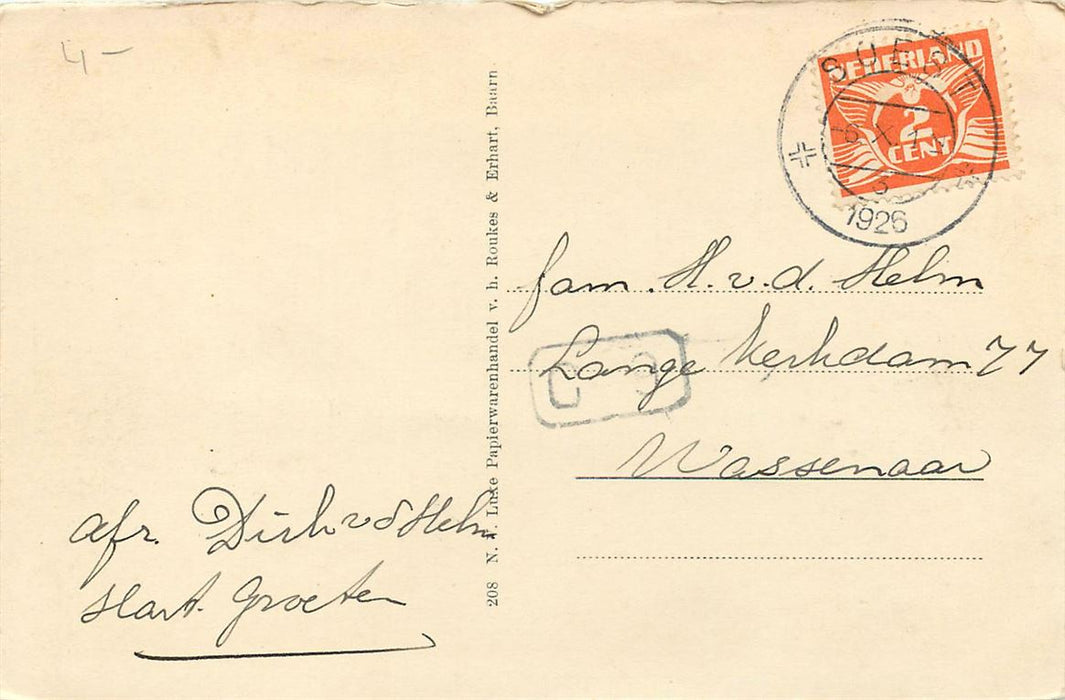 4-
NEDERLAND
2
CENT
SOEST
-6.X.1
3
1926
fam. H. v. d. Helm
Lange Kerkdam 77
Wassenaar
afz. Dirk v d Helm
Hart. Groeten
208 N. V. Luxe Papierwarenhandel v. h. Roukes & Erhart, Baarn